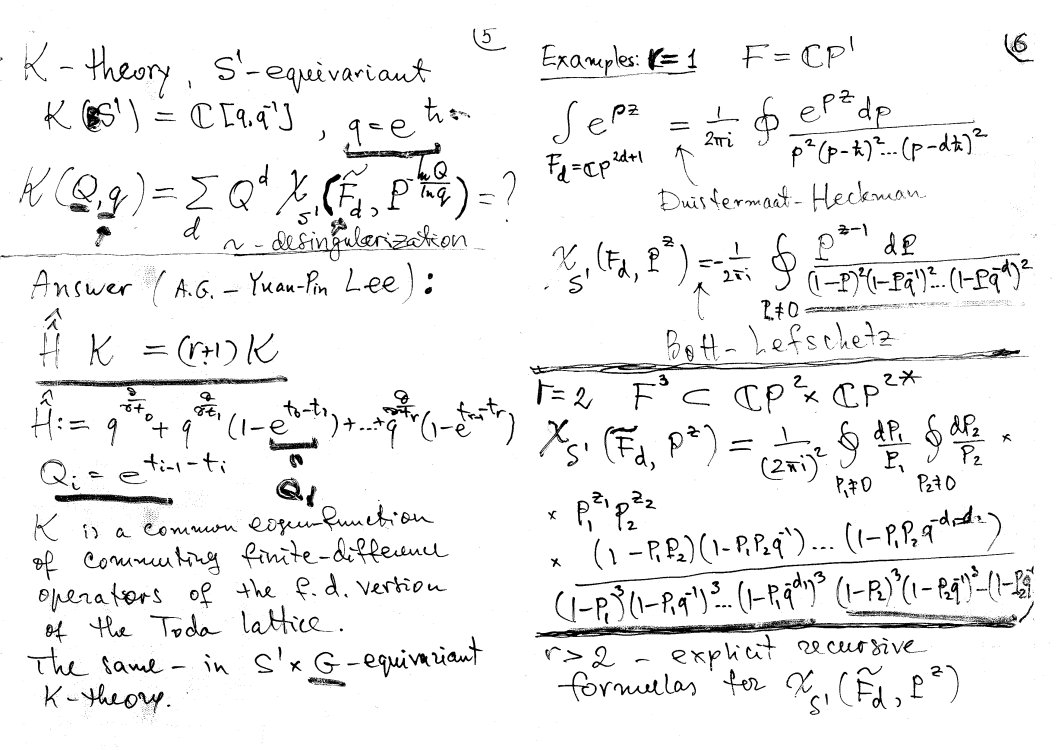 5
K-theory, S¹-equivariant
K(BS¹) = ℂ[q,q⁻¹], q = e^ħ
K(Q,q) = Σ_d Q^d χ_S¹(F̃_d, P^{ln Q / ln q}) = ?
~ - desingularization
Answer (A.G. – Yuan-Pin Lee):
Ĥ K = (r+1) K
Ĥ := q^{∂/∂t₀} + q^{∂/∂t₁}(1 - e^{t₀-t₁}) + ... + q^{∂/∂t_r}(1 - e^{t_{r-1}-t_r})
Q_i = e^{t_{i-1}-t_i}
" Q₁
K is a common eigenfunction
of commuting finite-difference
operators of the f.d. version
of the Toda lattice.
The same – in S¹ × G -equivariant
K-theory.
6
Examples: r = 1 F = ℂP¹
∫_{F_d = ℂP^{2d+1}} e^{pz} = 1/(2πi) ∮ e^{pz} dp / (p²(p-ħ)²...(p-dħ)²)
Duistermaat-Heckman
χ_S¹(F_d, P^z) = - 1/(2πi) ∮_{P≠0} P^{z-1} dP / ((1-P)²(1-Pq⁻¹)²...(1-Pq^{-d})²)
Bott-Lefschetz
r = 2 F³ ⊂ ℂP² × ℂP^{2*}
χ_S¹(F̃_d, P^z) = 1/(2πi)² ∮_{P₁≠0} dP₁/P₁ ∮_{P₂≠0} dP₂/P₂ ×
× P₁^{z₁} P₂^{z₂}
× (1-P₁P₂)(1-P₁P₂q⁻¹)...(1-P₁P₂q^{-d₁-d₂})
(1-P₁)³(1-P₁q⁻¹)³...(1-P₁q^{-d₁})³ (1-P₂)³(1-P₂q⁻¹)³-(1-P₂q⁻
r > 2 – explicit recursive
formulas for χ_S¹(F̃_d, P^z)